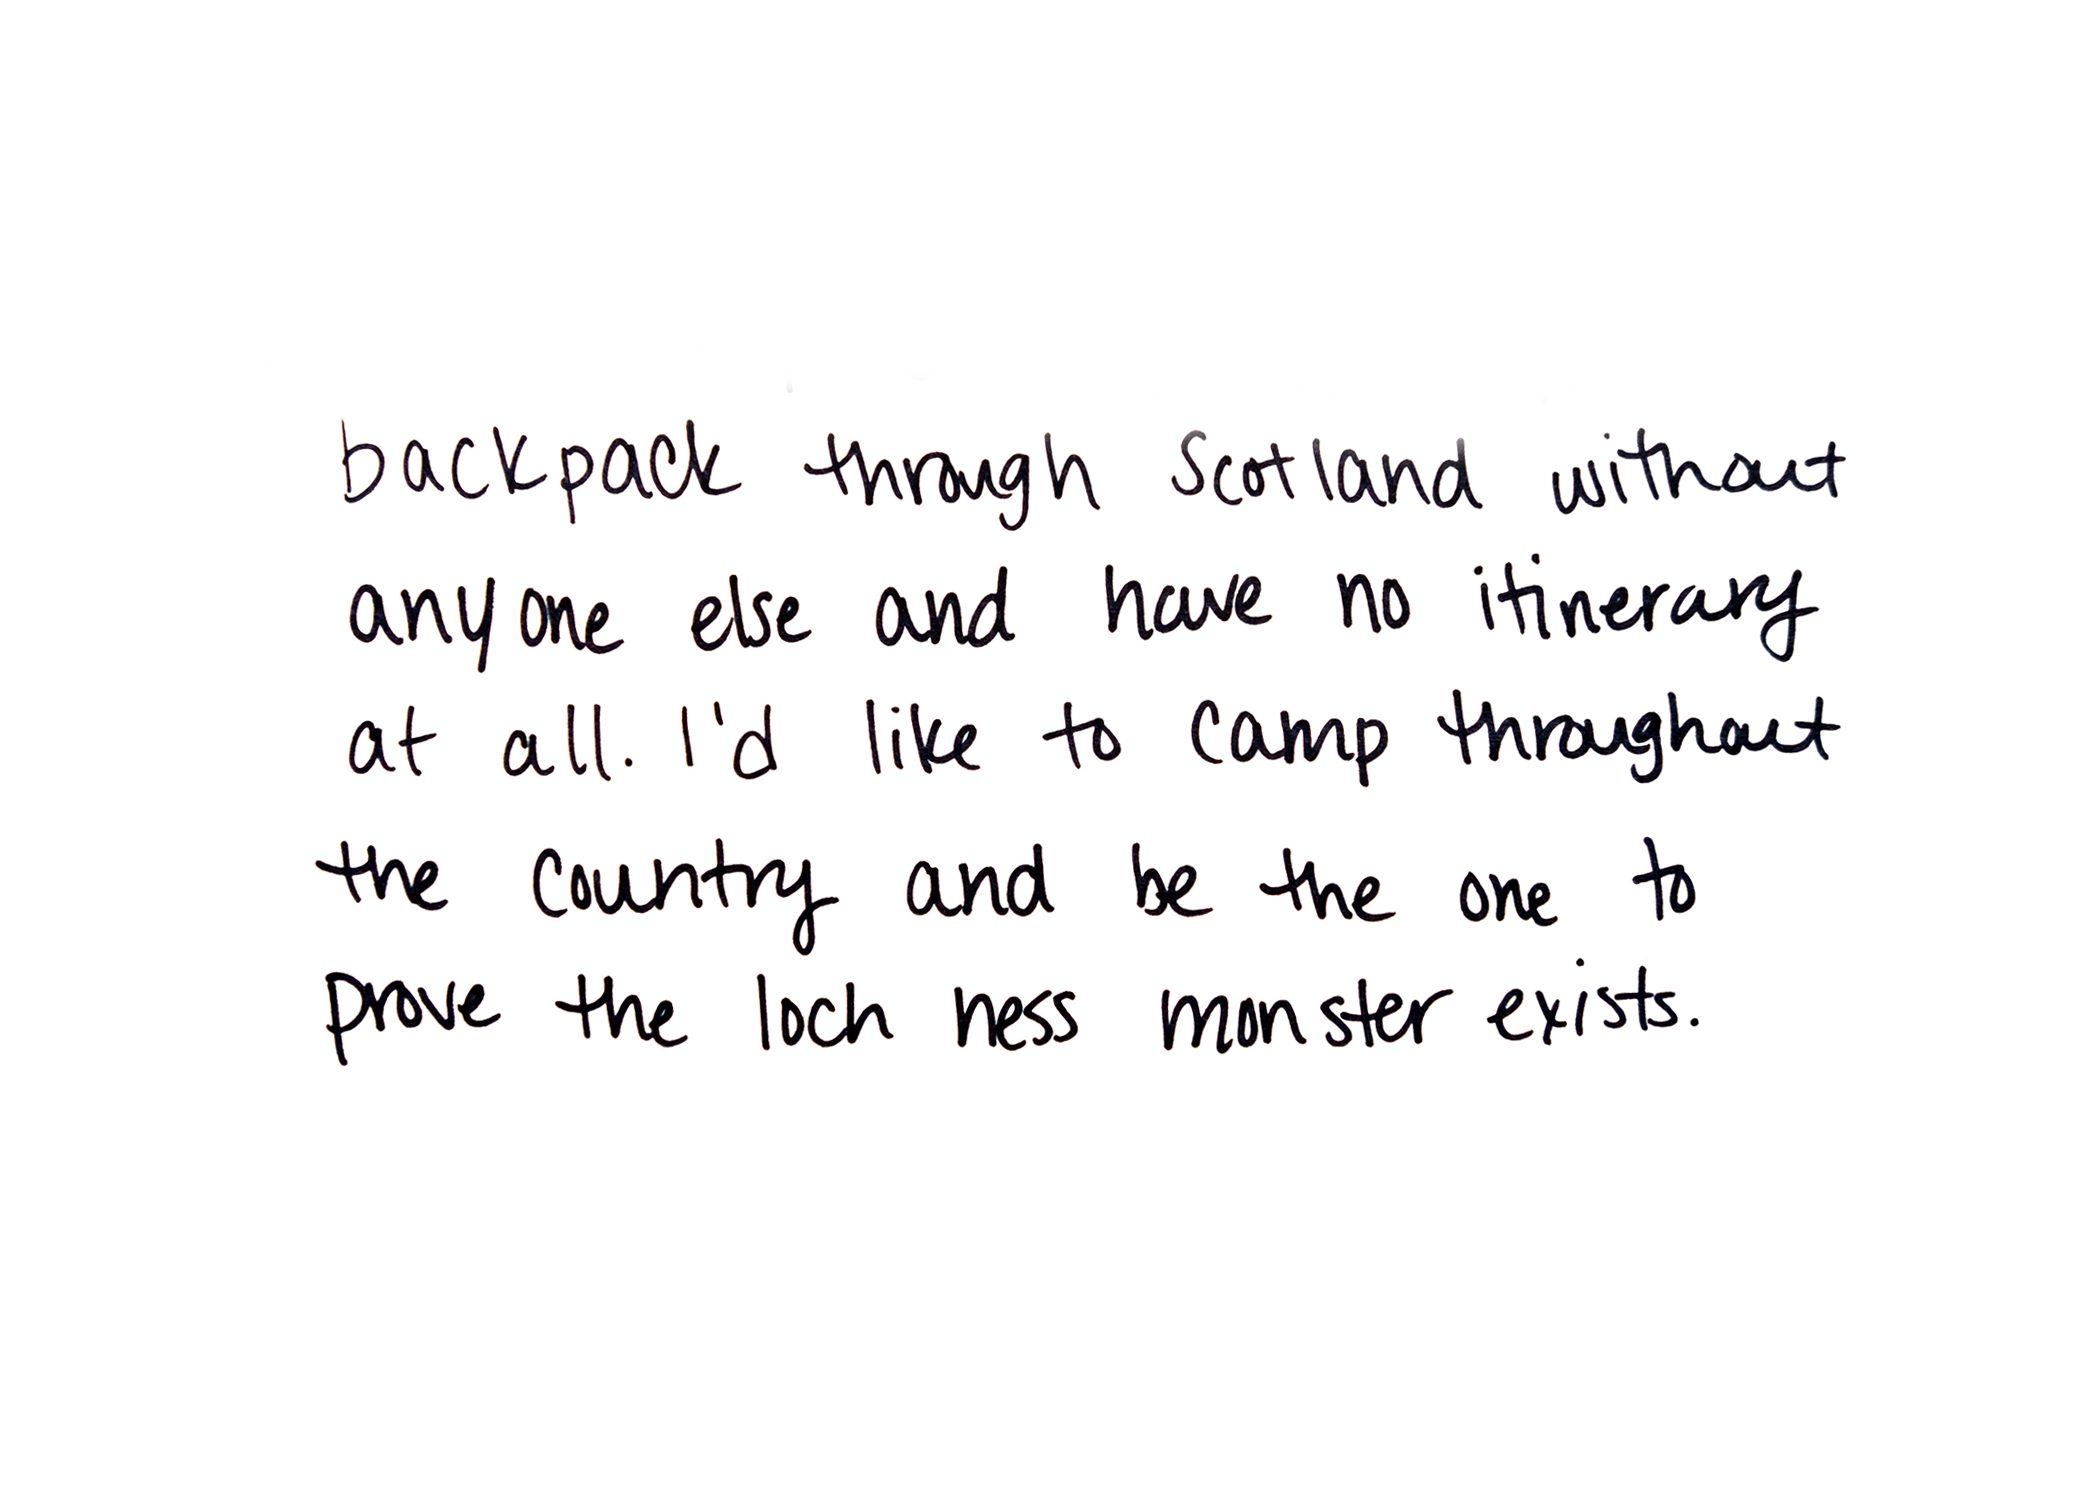 backpack through Scotland without
anyone else and have no itinerary
at all. I'd like to camp throughout
the country and be the one to
prove the loch ness monster exists.